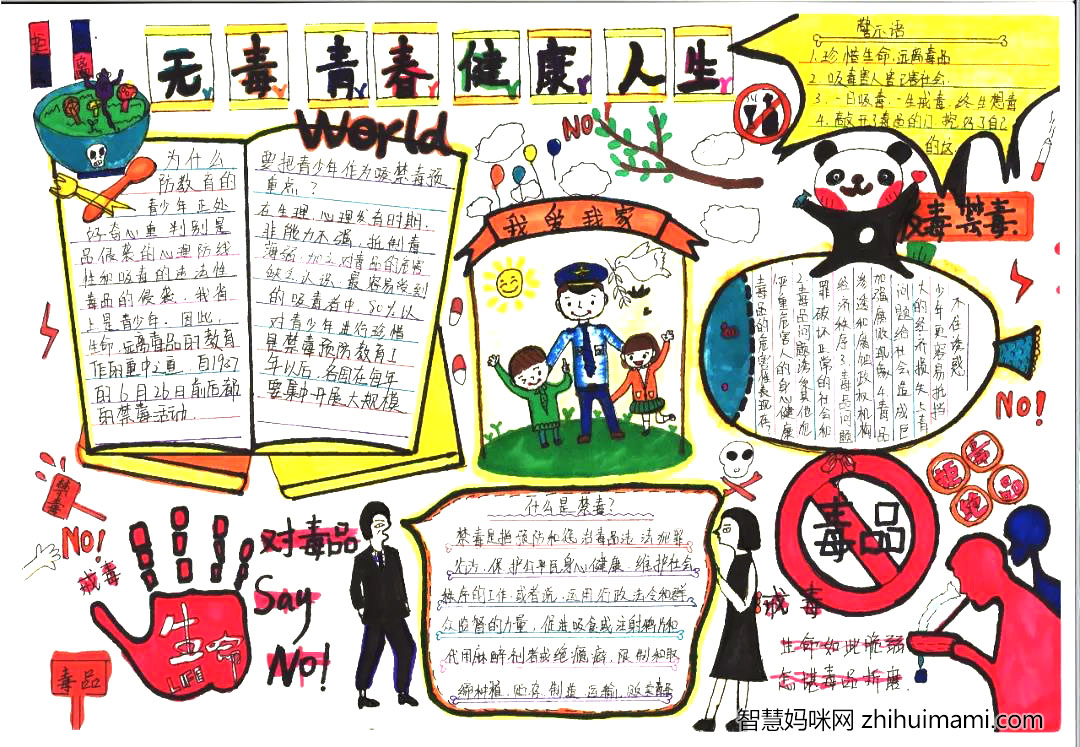 拒
毒
无毒青春健康人生
World
警示语
1.珍惜生命,远离毒品
2.吸毒害人害己害社会.
3.一日吸毒,一生戒毒,终生想毒
NO
为什么
防教育的
青少年正处
好奇心重判别是
品侵袭的心理防线
性和吸毒的违法性
毒品的侵袭.我省
上是青少年.因此,
生命,远离毒品的教育
作的重中之重.自1987
的6月26日前后都
的禁毒活动.
要把青少年作为吸禁毒预
重点?
在生理.心理发育时期.
非能力不强,抵制毒
薄弱,加之对毒品的危害
缺乏认识,最容易受到
的吸毒者中,80%以
对青少年进行珍惜
是禁毒预防教育工
年以后,各国在每年
要集中开展大规模
我爱我家
禁毒.
不住诱惑
少年更容易抵挡
大的经济损失上青
问题给社会造成巨
加强腐收现象4.毒品
渗透和腐蚀政权机构
经济秩序3.毒品问题
罪破坏正常的社会和
2.毒品问题诱发其他犯
1.严重危害人的身心健康
毒品的危害性表现在
No!
拒毒
绝品
毒品
什么是禁毒?
禁毒是指预防和惩治毒品违法犯罪
行为,保护公民身心健康.维护社会
秩序的工作.或者说,运用行政法令和群
众监督的力量,促进吸食或注射鸦片和
代用麻醉剂者戒绝瘾癖,限制和取
缔种植.贮存.制造.运输.贩卖毒品
禁毒
No!
戒毒
对毒品
Say
No!
生命
LIFE
毒品
戒毒
生命如此脆弱
怎堪毒品折磨.
智慧妈咪网 zhihuimami.com